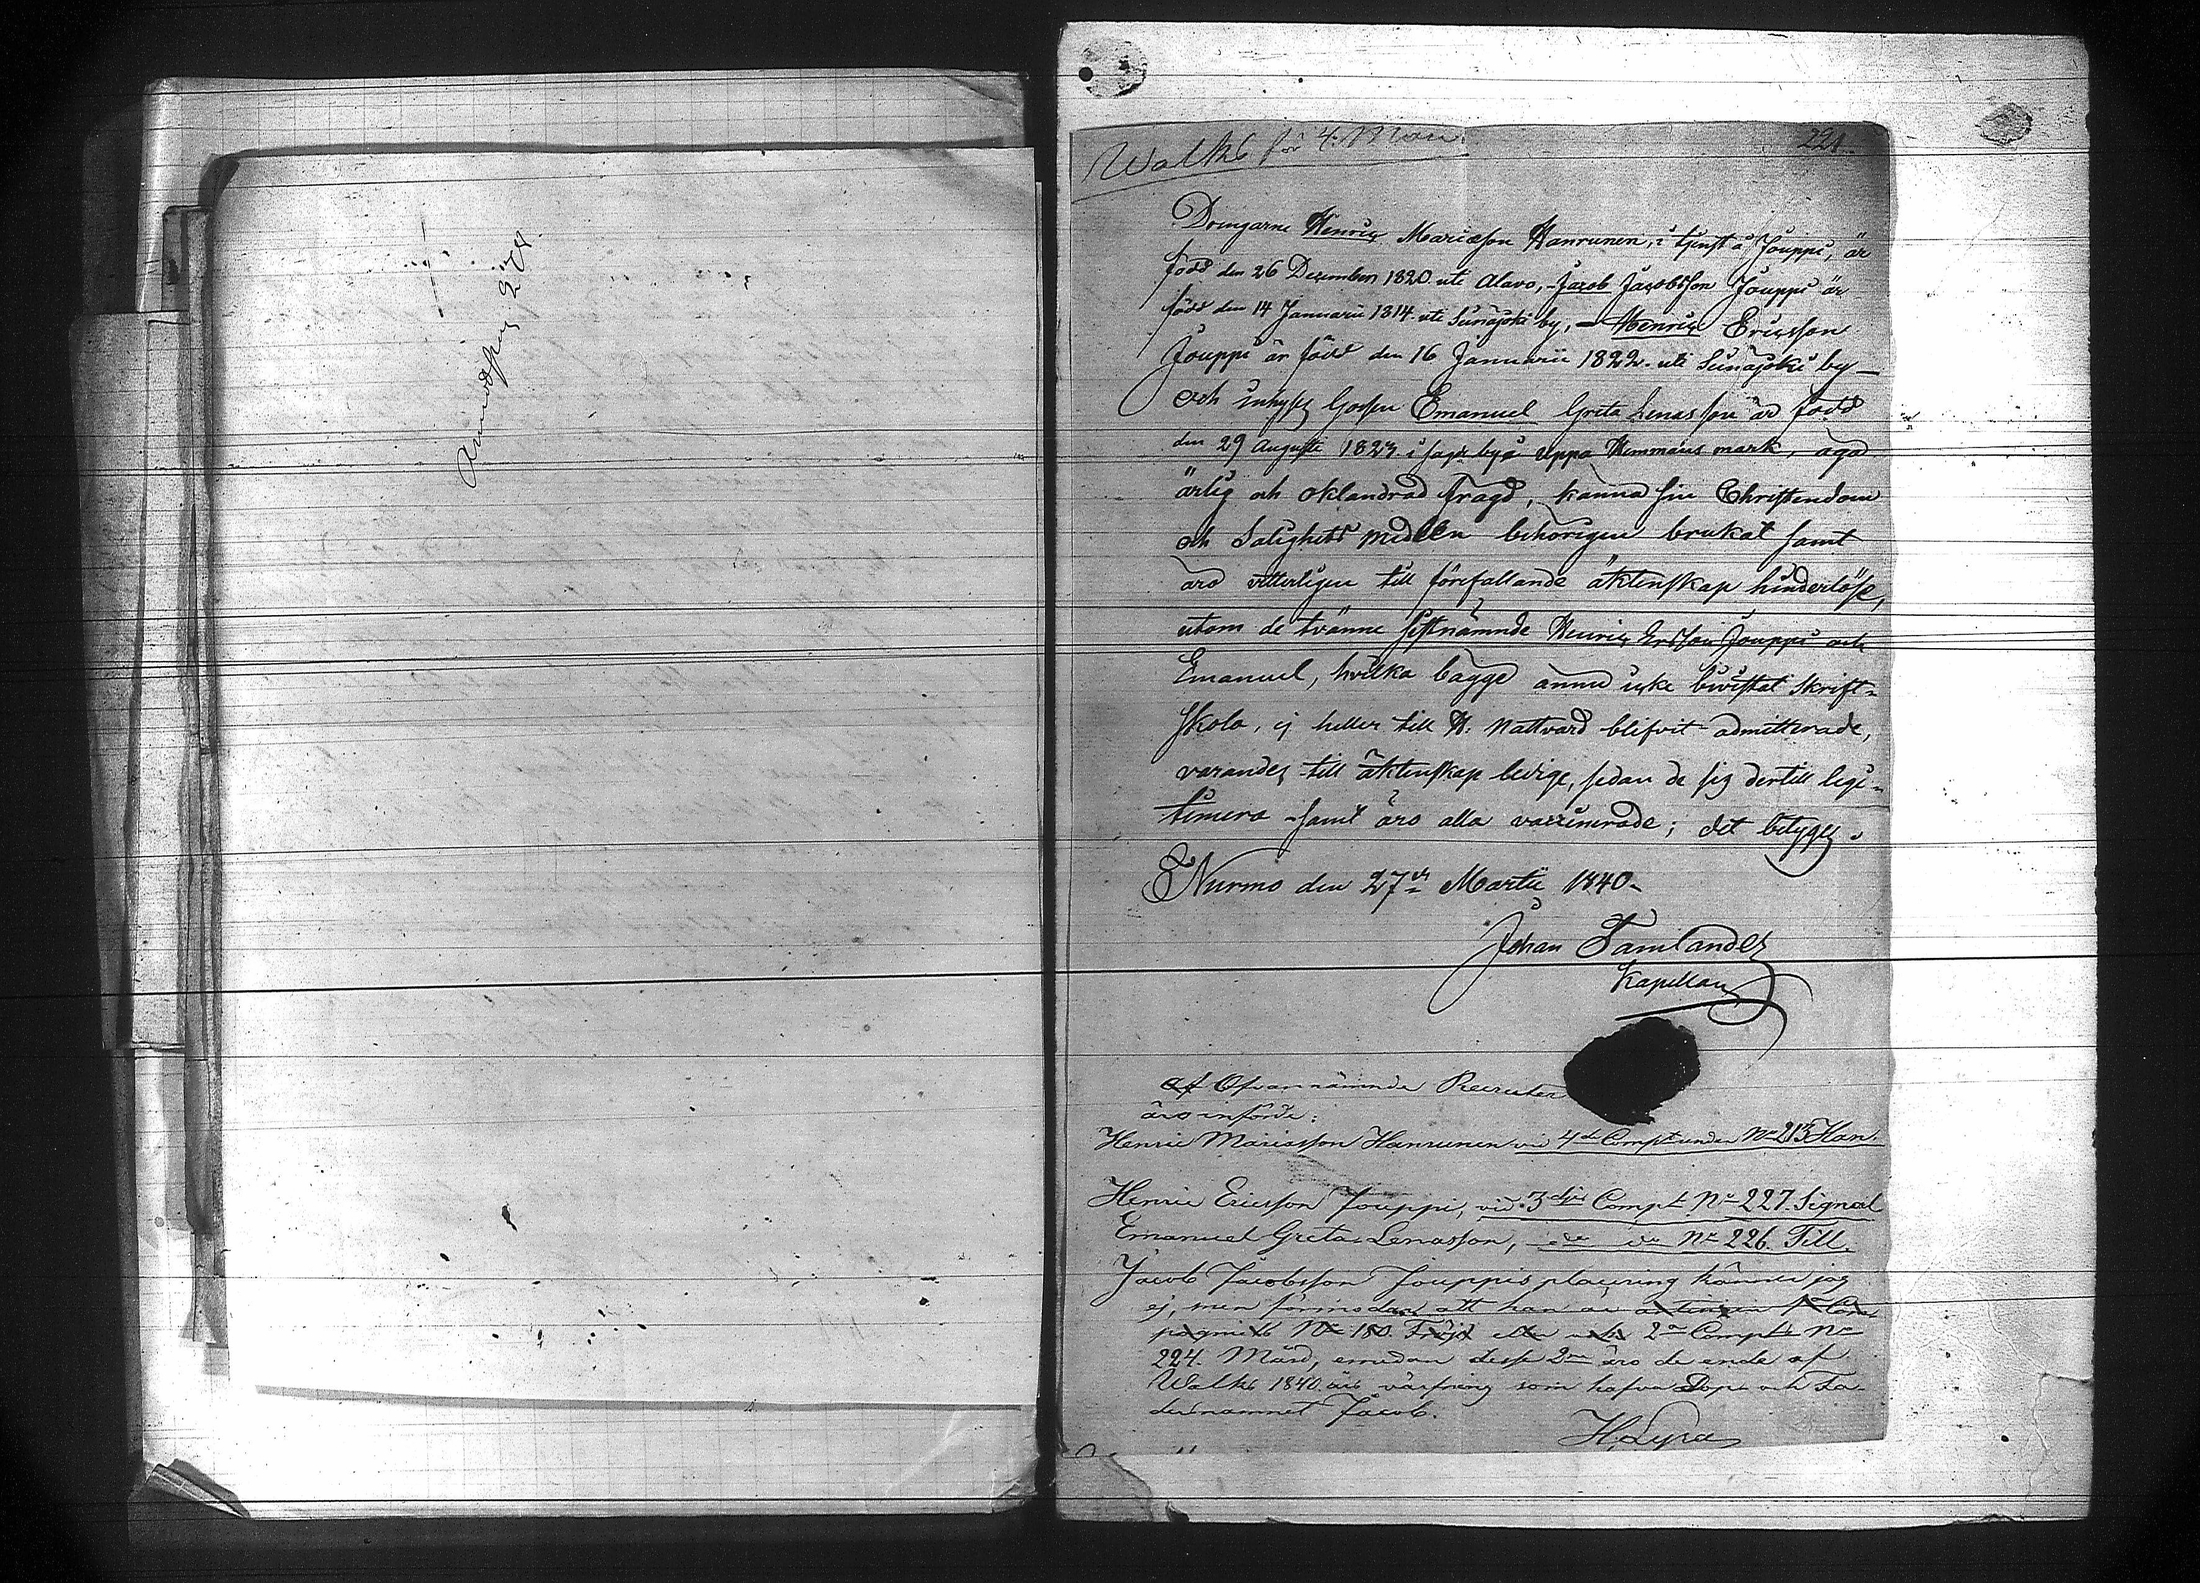 Walkö för 4. Man.
221.
Drengarne Henric Mariæson Hanrunen, i tjenst å Jouppi, är
född den 26 December 1820 uti Alavo, - Jacob Jacobsson Jouppi är
född den 14 Januarii 1814 uti Seinäjoki by, - Henric Ericsson
Jouppi är född den 16 Januarii 1822 uti Seinäjoki by -
och inhyses Gossen Emanuel Greta Lenas son är född
den 29 Augusti 1823 i by uppå Hemmans mark, äga
ärlig och oklandrad fragd, känna sin Christendom
och Salighets medlen behörigen brukat samt
äro vitterligen till förefallande äktenskap hinderlöse,
utom de tvänne sistnämnde Henric Ersson Jouppi och
Emanuel, hvilka bägge ännu icke bivistat Skrift-
skola, ej heller till H. Nattvard blifvit admitterade,
varandes till äktenskap ledige, sedan de sig dertill legi-
timera - samt äro alla vaccinerade; det betygar
Nurmo den 27de Martii 1840.
Johan Tamlander
Kapellan
af Ofvannämnde Recruter
äro införde:
Henric Mariasson Hanrunen vid 4de Compt under No 213 Han.
Henric Ericsson Jouppi, vid 3dje Compt No 227. Signal
Emanuel Greta Lenasson, do do No 226. Till.
Jacob Jacobsson Jouppis placering känner jag
ej, men förmodar att han är antingen 1a Com-
pagniets No 180. Fröjd eller 2a Compts No
224. Mård, emedan desse 2ne äro de enda af
Walkö 1840 års värfning som hafva Dop- och Fa-
dersnamnet Jacob.
H. Lyra